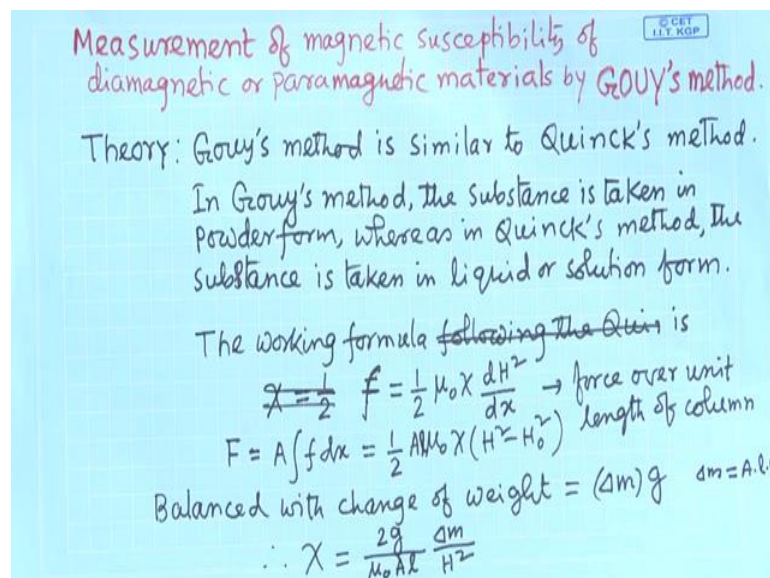 © CET
I.I.T. KGP
Measurement of magnetic susceptibility of
diamagnetic or paramagnetic materials by GOUY's method.
Theory: Gouy's method is similar to Quinck's method.
In Gouy's method, the substance is taken in
powder form, whereas in Quinck's method, the
substance is taken in liquid or solution form.
The working formula following the Quin is
χ = 1/2 f = 1/2 μ₀ χ dH²/dx → force over unit
length of column
F = A∫f dx = 1/2 Aμ₀ χ (H² - H₀²)
Balanced with change of weight = (Δm)g Δm = A.l.
∴ χ = 2g/μ₀Al Δm/H²